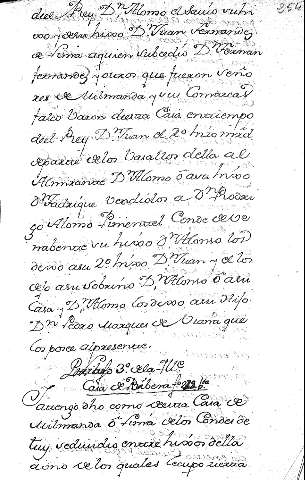 del Rey Dn Alonso dejando su hi
xo y desu hixo Dn Juan Fernandez
de Lima aquien subcedio Dn Fernan
fernandez y otros que fueron seño
res de Milmanda y su Comarca
falto Varon desta Casa en tiempo
del Rey Dn Juan el 2º hizo mrd
de parte de los Vasallos della al
Almirante Dn Alonso
Dn Fadrique Vendiolos a Dn Rodri
go Alonso Pimentel Conde de Be
nabente su hixo Dn Alonso los
dexo asu 2º hixo Dn Juan y el los
dexo asu sobrino Dn Alonso
Casa y Dn Alonso los dexo asu hijo
Dn Pedro Marques de Viana que
los posee al presente.
Parrafo 3º de la
Casa de Ribera
Tauengo dho como desta Casa de
Milmanda Lima de los Condes de
tuy se dividio entre hixos della
uno de los quales
254